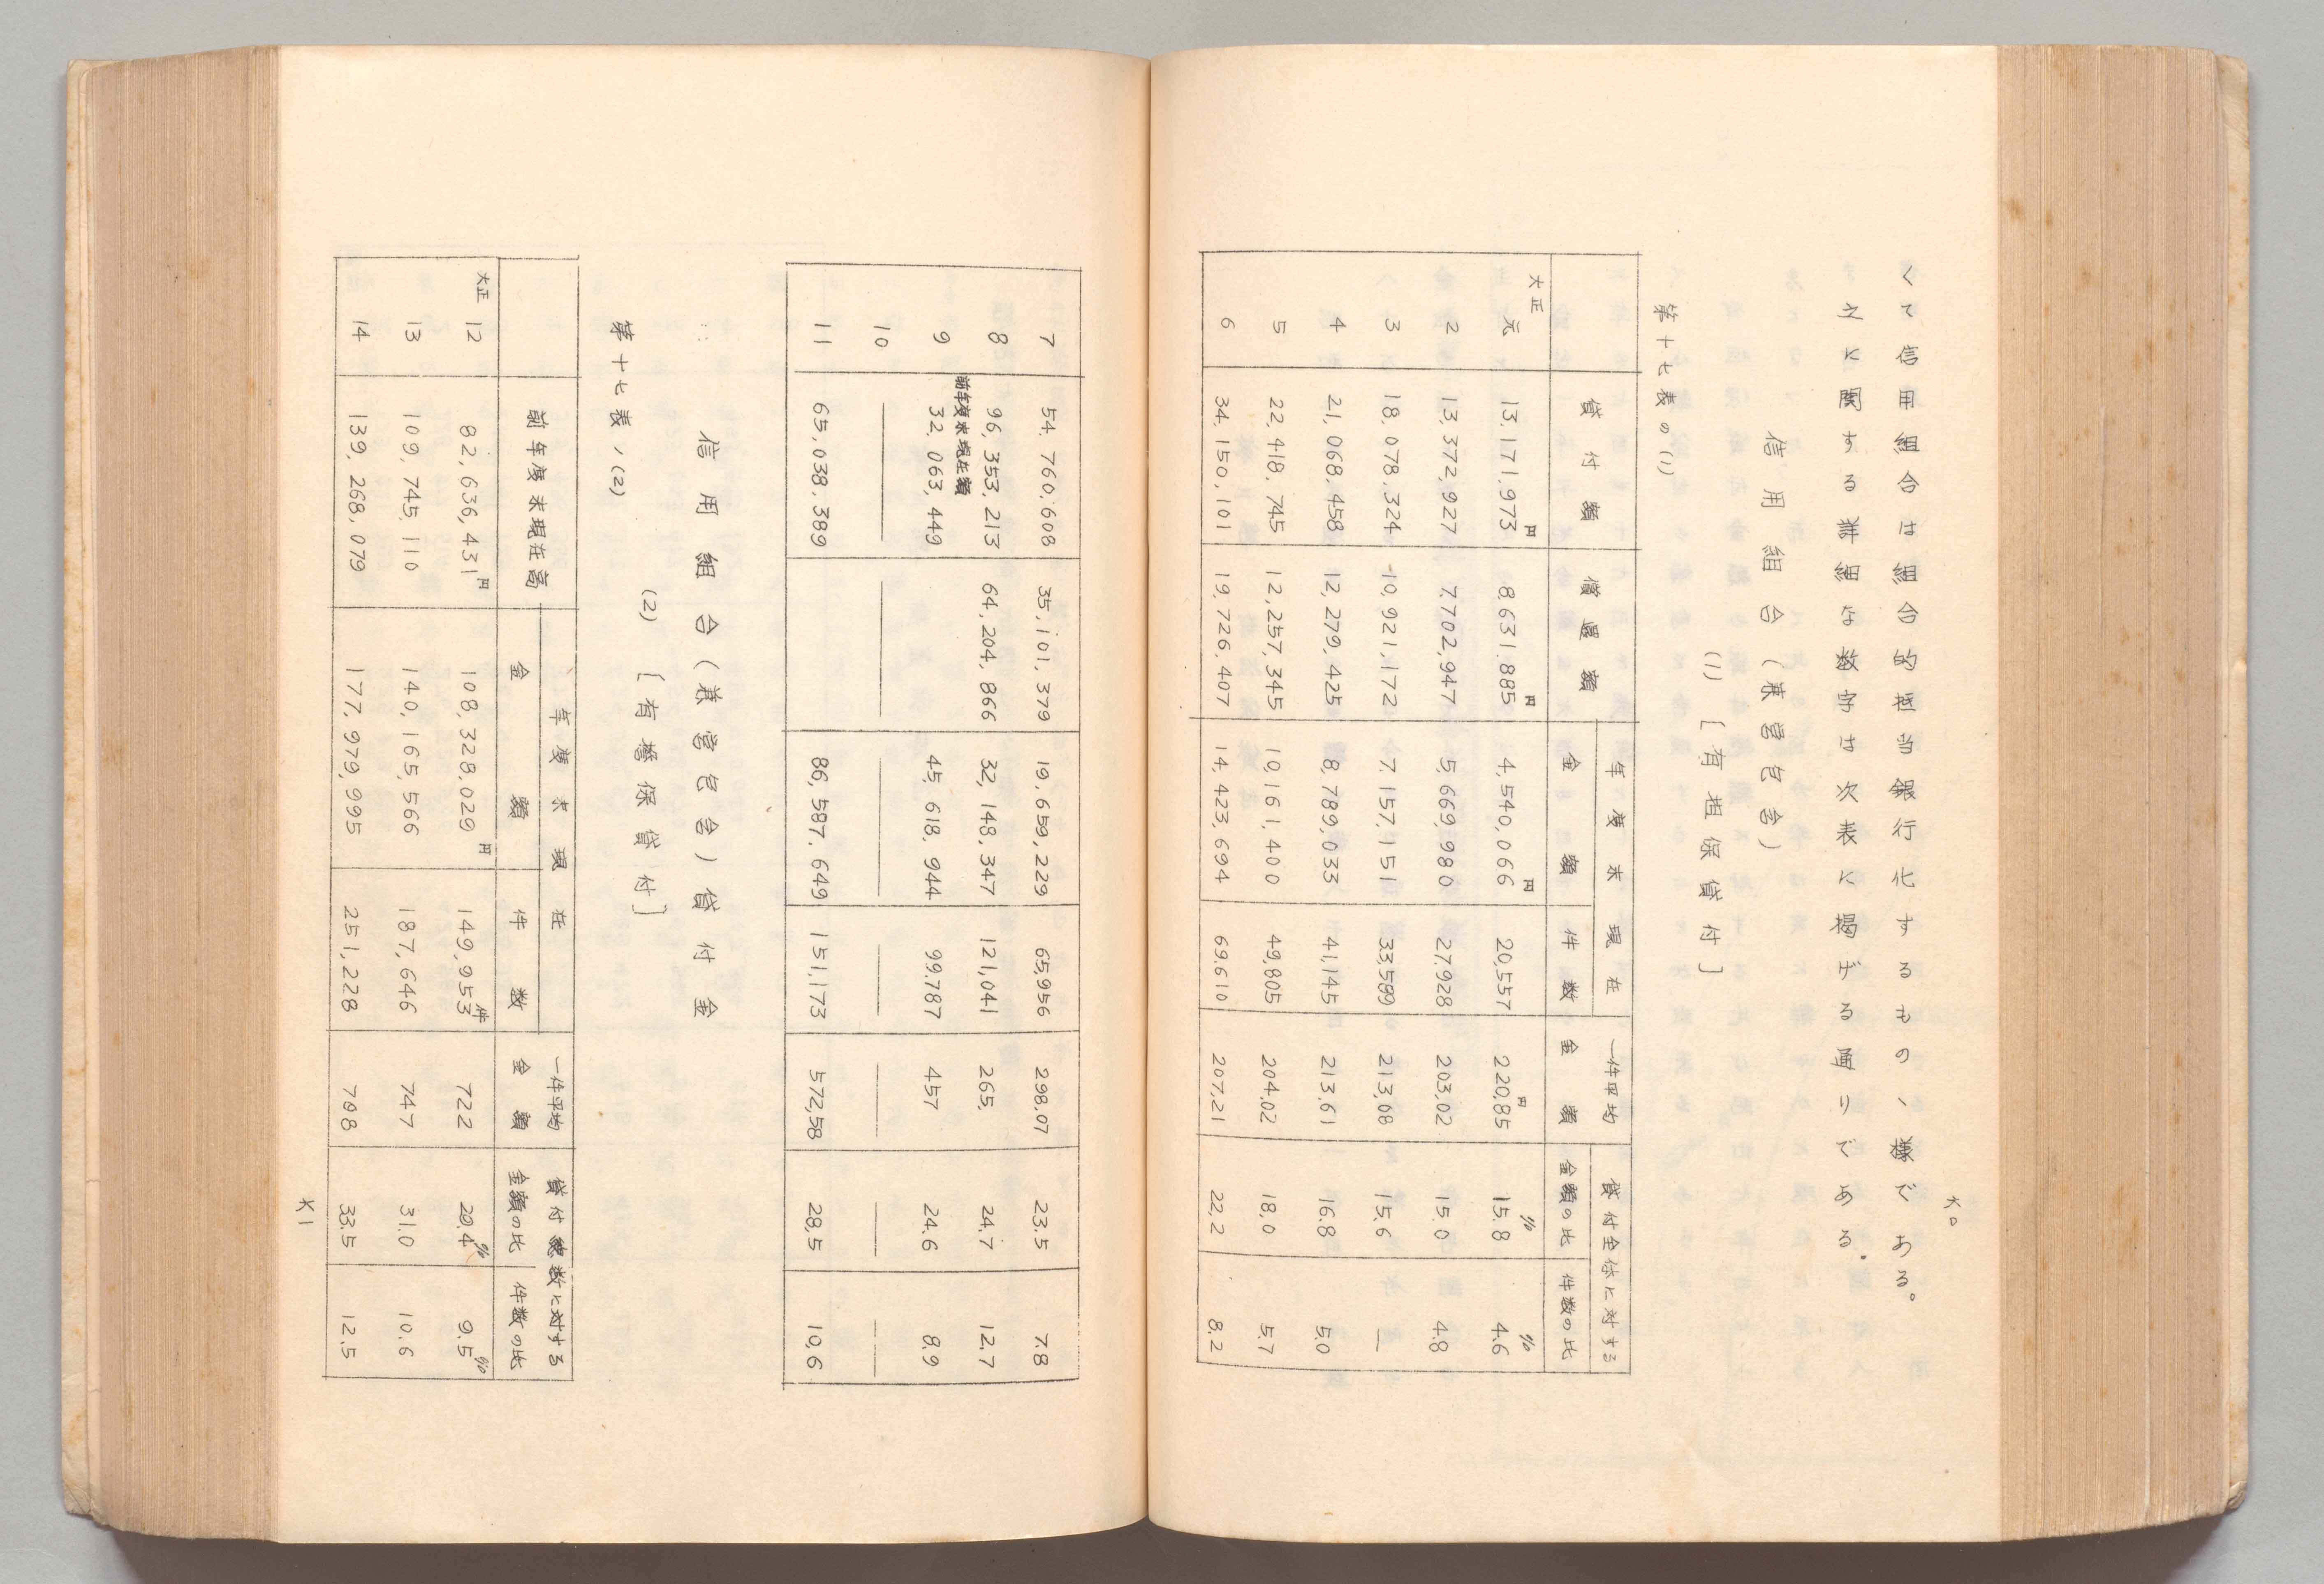 くて信用組合は組合的抵当銀行化するものゝ様である。
之に関する詳細な数字は次表に掲げる通りである.
信用組合(兼営包含)
(1) [有担保貸付]
第十七表の(1)
貸付額 償還額 年度末現在 一件平均 貸付全体に対する
金額 件数 金額 金額の比 件数の比
大正 元 13,171,973円 8,631,885円 4,540,066円 20,557 220,85円 15.8% 4.6%
2 13,372,927 7,7702,947 5,669,980 27,928 203,02 15.0 4.8
3 18,078,324 10,921,172 7,157,151 33,589 213,08 15,6 —
4 21,068,458 12,279,425 8,789,033 41,145 213,61 16.8 5,0
5 22,418,745 12,257,345 10,161,400 49,805 204,02 18,0 5.7
6 34,150,101 19,726,407 14,423,694 69,610 207,21 22,2 8,2
7 54,760,608 35,101,379 19,659,229 65,956 298,07 23.5 7.8
8 96,353,213 64,204,866 32,148,347 121,041 265, 24,7 12,7
前年度末現在額
9 32,063,449 45,618,944 99,787 457 24.6 8,9
10 — — — — — — —
11 65,038,389 86,587,649 151,173 572,58 28,5 10,6
信用組合(兼営包含)貸付金
(2) [有擔保貸付]
第十七表ノ(2)
前年度末現在高 年度末現在 一件平均 貸付総数に対する
金額 件数 金額 金額の比 件数の比
大正 12 82,636,431円 108,328,029円 149,953件 722 29,4% 9.5%
13 109,745,110 140,165,566 187,646 747 31.0 10.6
14 139,268,079 177,979,995 251,228 708 33.5 12.5